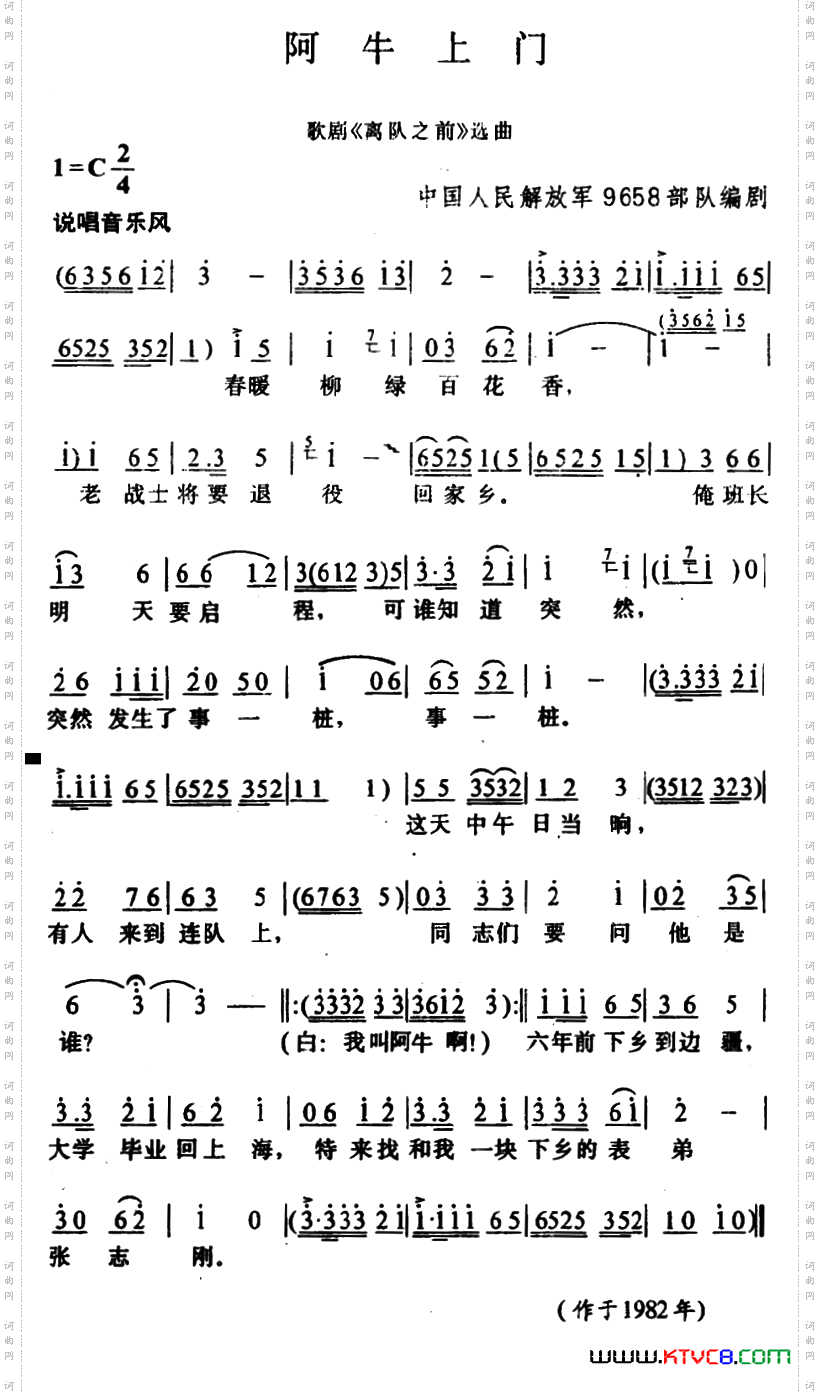 阿牛上门
歌剧《离队之前》选曲
1=C 2/4
中国人民解放军9658部队编剧
说唱音乐风
(6356 i2 | 3 - | 3536 i3 | 2 - | 3.333 2i | i.iii 65 |
6525 352 | 1) i 5 | i 7 i | 03 62 | i - | (3562 i5 i - |
春暖 柳 绿 百 花 香,
i) i 65 | 2.3 5 | 5 i - | 6525 1(5 | 6525 15 | 1) 3 66 |
老 战士将要 退 役 回家乡. 俺班长
i3 6 | 66 12 | 3(612 3)5 | 3·3 2i | i 7 i | (i 7 i )0 |
明 天 要 启 程, 可谁知 道 突 然,
26 iii | 20 50 | i 06 | 65 52 | i - | (3.333 2i |
突然 发生了 事 一 桩, 事 一 桩.
i.iii 65 | 6525 352 | 11 1) | 55 3532 | 12 3 | (3512 323) |
这天 中午 日当 晌,
22 76 | 63 5 | (6763 5) | 03 33 | 2 i | 02 35 |
有人 来到 连队 上, 同 志们 要 问 他 是
6 3 | 3 — ‖:(3332 33 | 36i2 3):‖ iii 65 | 36 5 |
谁? (白: 我叫阿牛 啊!) 六年前 下乡到边 疆,
3.3 2i | 62 i | 06 i2 | 3.3 2i | 333 6i | 2 - |
大学 毕业回上 海, 特 来找和我 一块 下乡的 表 弟
30 62 | i 0 | (3·333 2i | i·iii 65 | 6525 352 | 10 i0)‖
张 志 刚.
(作于1982年)
www.KTVC8.com